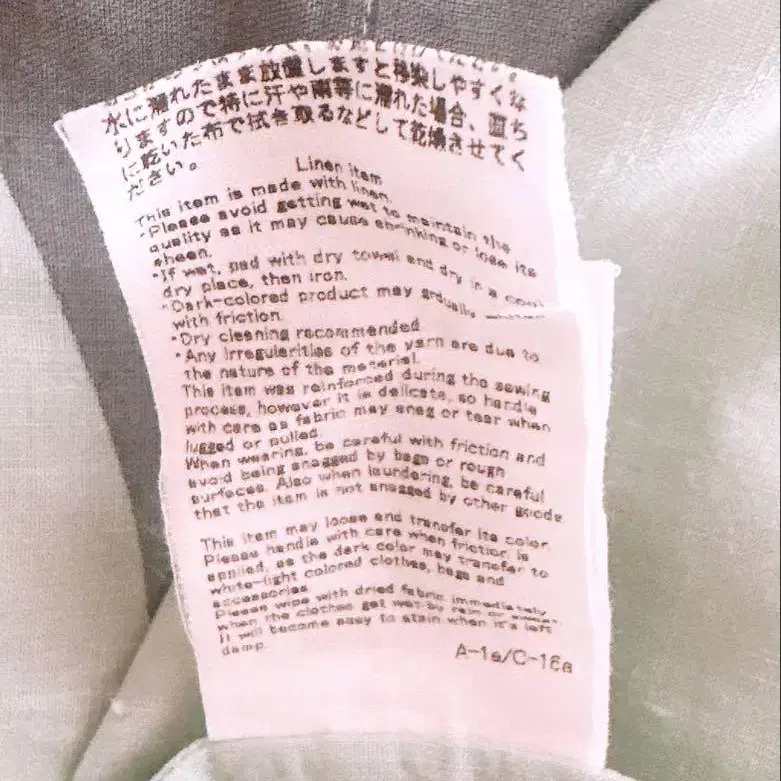 水に濡れたまま放置しますと移染しやすくな
りますので特に汗や雨等に濡れた場合、直ち
に乾いた布で拭き取るなどして乾燥させてく
ださい。
Linen item
This item is made with linen.
*Please avoid getting wet to maintain the
quality as it may cause shrinking or lose its
sheen.
*If wet, pad with dry towel and dry in a cool
dry place, then iron.
*Dark-colored product may gradually
with friction.
*Dry cleaning recommended.
*Any irregularities of the yarn are due to
the nature of the material.
This item was reinforced during the sewing
process, however it is delicate, so handle
with care as fabric may snag or tear when
lugged or pulled.
When wearing, be careful with friction and
avoid being snagged by bags or rough
surfaces. Also when laundering, be careful
that the item is not snagged by other goods.
This item may loose and transfer its color.
Please handle with care when friction is
applied, as the dark color may transfer to
white-light colored clothes, bags and
accessories.
Please wipe with dried fabric immediately
when the clothes get wet by rain or sweat.
It will become easy to stain when it's left
damp.
A-1a/C-16a